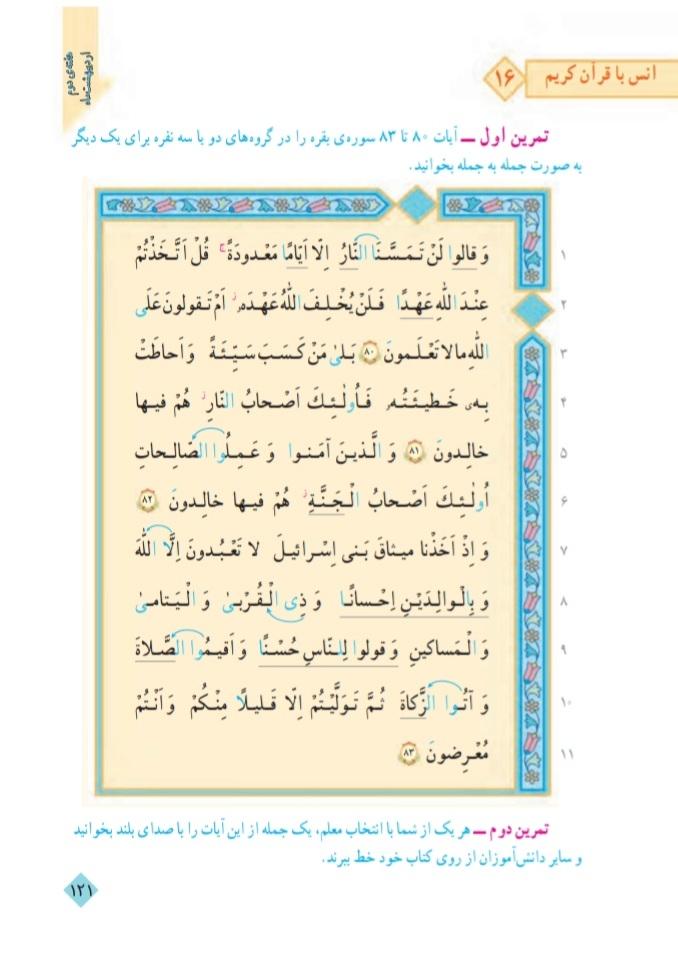 هفته‌ی دوم
اردیبهشت‌ماه
انس با قرآن کریم
۱۶
تمرین اول ـ آیات ۸۰ تا ۸۳ سوره‌ی بقره را در گروه‌های دو یا سه نفره برای یک دیگر
به صورت جمله به جمله بخوانید.
۱ وَ قالوا لَنْ تَمَسَّنَا النّارُ اِلّا اَیّامًا مَعْدودَةً ۚ قُلْ اَتَّخَذْتُمْ
۲ عِنْدَ اللّٰهِ عَهْدًا فَلَنْ یُخْلِفَ اللّٰهُ عَهْدَهٗ ۖ اَمْ تَقولونَ عَلَی
۳ اللّٰهِ ما لا تَعْلَمونَ ۸۰ بَلیٰ مَنْ کَسَبَ سَیِّئَةً وَ اَحاطَتْ
۴ بِهٖ خَطیئَتُهٗ فَاُولٰئِکَ اَصْحابُ النّارِ ۖ هُمْ فیها
۵ خالِدونَ ۸۱ وَ الَّذینَ آمَنوا وَ عَمِلُوا الصّالِحاتِ
۶ اُولٰئِکَ اَصْحابُ الْجَنَّةِ ۖ هُمْ فیها خالِدونَ ۸۲
۷ وَ اِذْ اَخَذْنا میثاقَ بَنی اِسْرائیلَ لا تَعْبُدونَ اِلَّا اللّٰهَ
۸ وَ بِالْوالِدَیْنِ اِحْسانًا وَ ذِی الْقُرْبیٰ وَ الْیَتامیٰ
۹ وَ الْمَساکینِ وَ قولوا لِلنّاسِ حُسْنًا وَ اَقیمُوا الصَّلاةَ
۱۰ وَ آتُوا الزَّکاةَ ثُمَّ تَوَلَّیْتُمْ اِلّا قَلیلًا مِنْکُمْ وَ اَنْتُمْ
۱۱ مُعْرِضونَ ۸۳
تمرین دوم ـ هر یک از شما با انتخاب معلم، یک جمله از این آیات را با صدای بلند بخوانید
و سایر دانش‌آموزان از روی کتاب خود خط ببرند.
۱۲۱